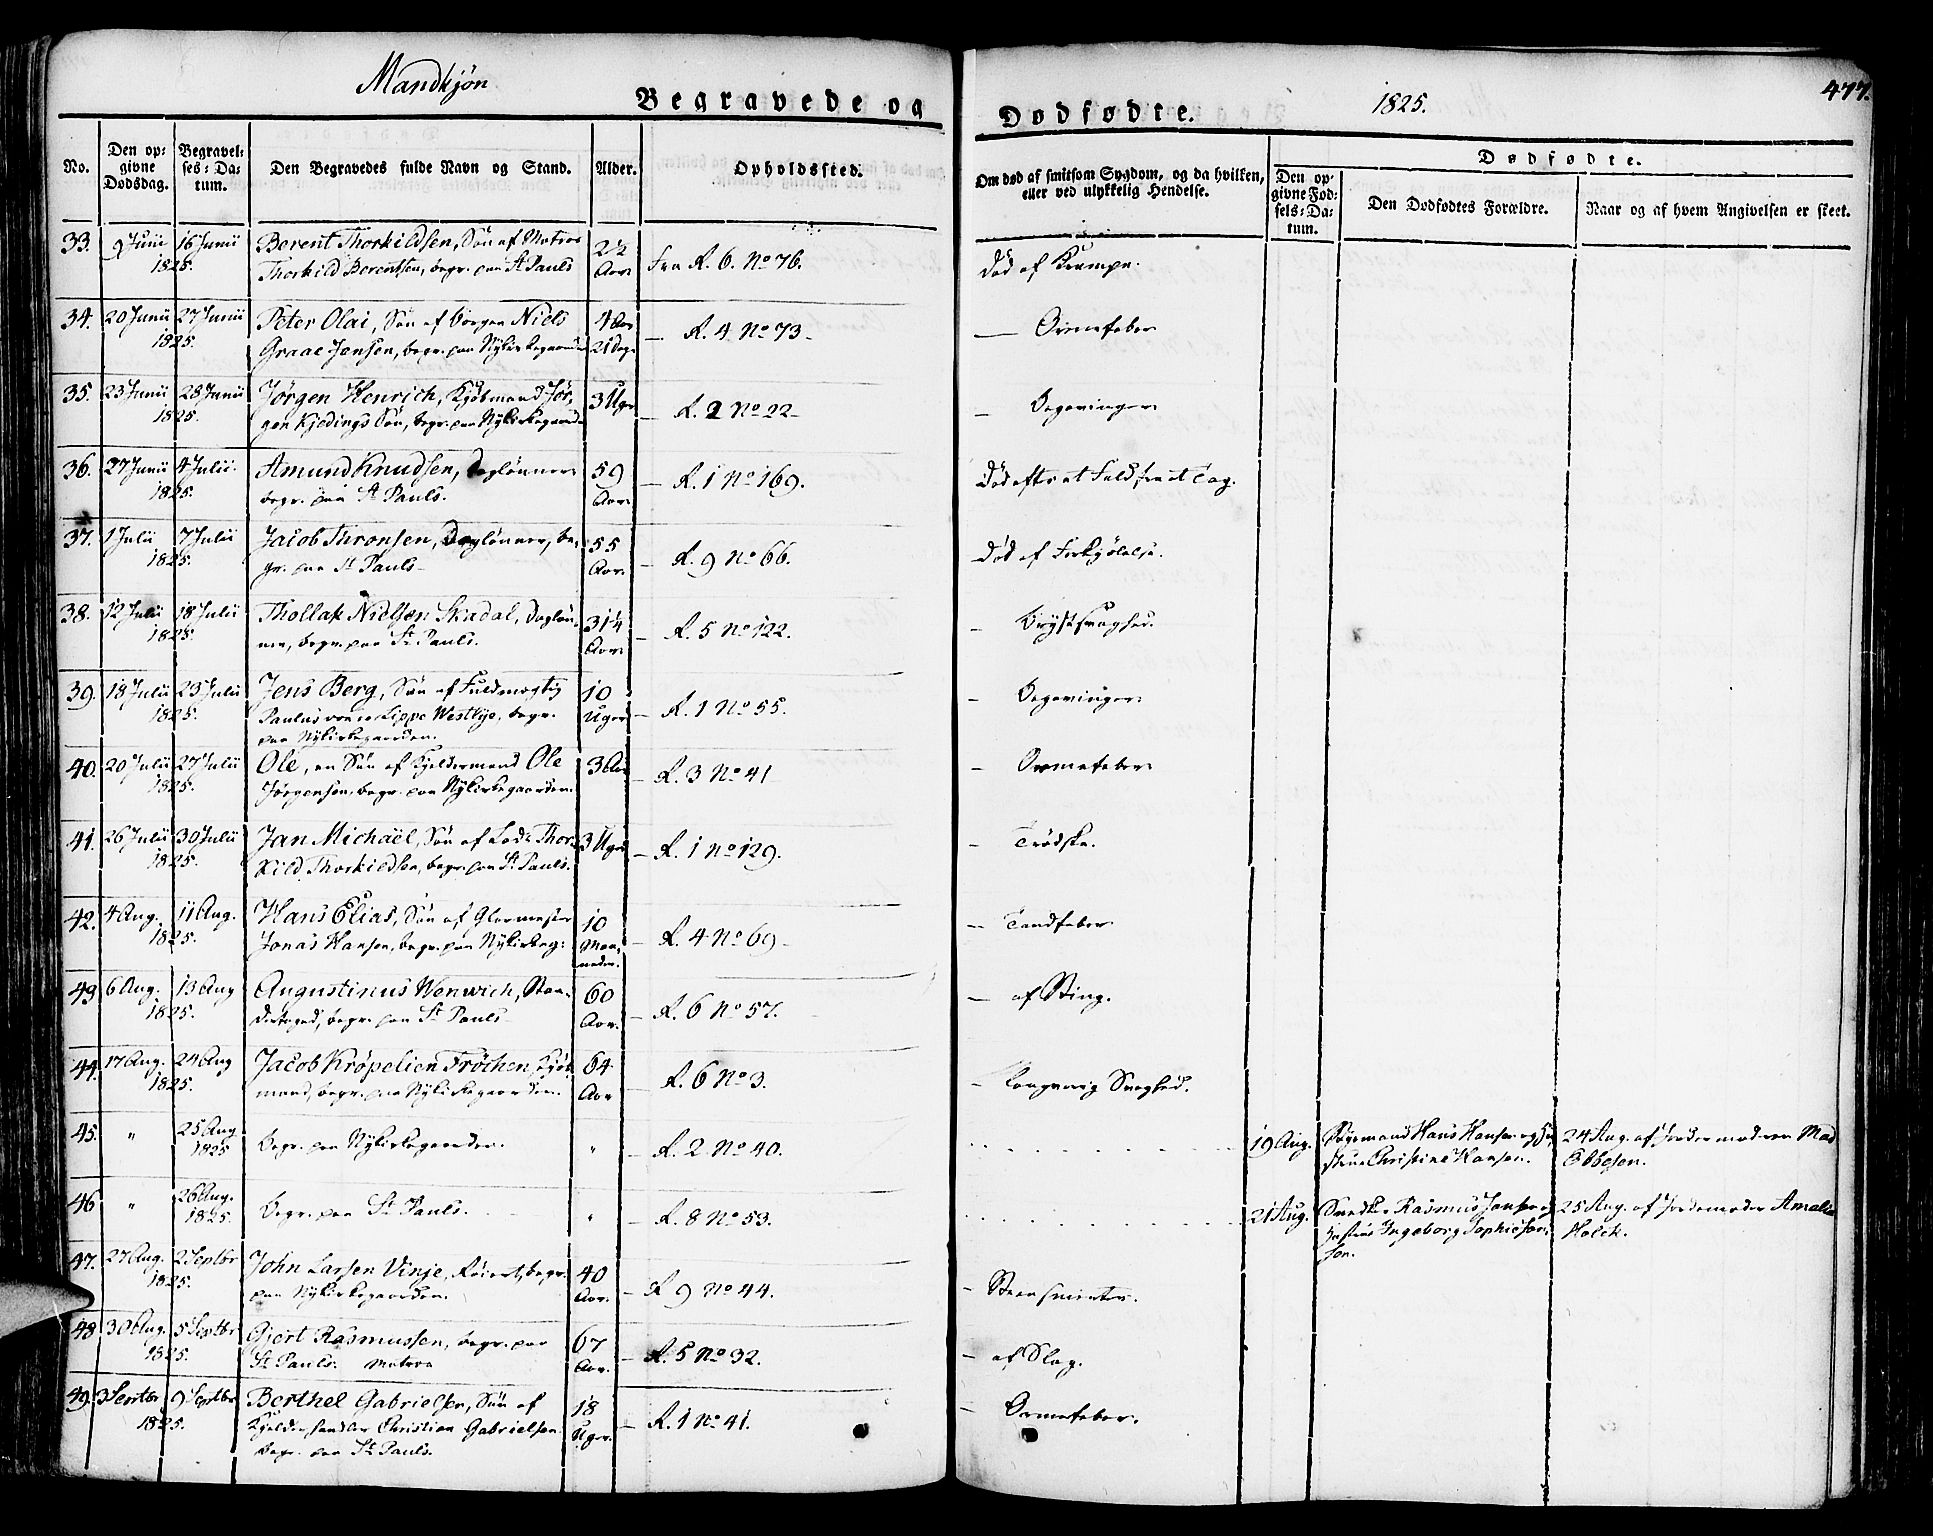 Mandkjøn
Begravede og
Dødfødte.
1825.
477.
No.
Den opgivne Dødsdag.
Begravelses-Datum.
Den Begravedes fulde Navn og Stand.
Alder.
Opholdssted.
Om død af smitsom Sygdom, og da hvilken, eller ved ulykkelig Hendelse.
Dødfødte.
Den opgivne Fødsels-Datum.
Den Dødfødtes Forældre.
Naar og af hvem Angivelsen er skeet.
33. 9 Junii 16 Junii Berent Thorkildsen, Søn af Matros 2½
1825. Thorkild Berentsen, begr. paa St Pauls Aar. Fra R. 6. No 76. Død af Krampe.
34. 20 Junii 27 Junii Peter Olai, Søn af borger Niels 4 Aar
1825. Graae Jensen, begr. paa Nykirkegaarden 21 Dage — R. 4 No 73 — Ormefeber
35. 23 Junii 28 Junii Jørgen Henrich, Kjøbmand Jør- 3 Uger
1825. gen Kjedings Søn, begr. paa Nykirkegaarden — R. 2 No 22 — Begavinger
36. 27 Junii 4 Julii. Amund Knudsen, Daglønner 59
1825. begr. paa St Pauls. Aar. — R. 1 No 169. Død efter et Fald fra et Tag.
37. 1 Julii 7 Julii Jacob Thronsen, Daglønner, be- 55
1825. gr. paa St Pauls Aar. — R. 9 No 66. Død af Forkjølelse.
38. 12 Julii 18 Julii Thollak Nielsen Skadal, Dagløn- 31¼
1825. ner, begr. paa St Pauls. Aar. — R. 5 No 122. — Brystsvaghed.
39. 18 Julii 23 Julii Jens Berg, Søn af Fuldmægtig 10
1825. Paulus von der Lippe Westbye, begr. Uger — R. 1 No 55. — Begavinger
paa Nykirkegaarden.
40. 20 Julii 27 Julii Ole, en Søn af Kjeldermand Ole 3 Aar
1825. Jørgensen, begr. paa Nykirkegaarden. — R. 3 No 41 — Ormefeber
41. 26 Julii 30 Julii Jan Michaël, Søn af Lods Thor- 3 Uger
1825. kild Thorkildsen, begr. paa St Pauls. — R. 1 No 129. — Trødske.
42. 4 Aug. 11 Aug. Hans Elias, Søn af Glarmester 10
1825. Jonas Hansen, begr. paa Nykirkeg: Maaneder. — R. 4 No 69 — Tandfeber
43 6 Aug. 13 Aug Augustinus Wenwich, 60
1825. begr. paa St Pauls Aar. — R. 6 No 57. — af Sting.
44. 17 Aug. 24 Aug Jacob Krøpelien Frøchen, Kjøb- 64
1825. mand, begr. paa Nykirkegaarden. Aar — R. 6 No 3. — Langvarig Svaghed.
45. " 25 Aug 1825 Begr. paa Nykirkegaarden. " — R. 2 No 40. 19 Aug. Søgemand Hans Hansen og Hu- 24 Aug. af Jordemoderen Mad
strue Christine Hansen. Ebbesen.
46 " 26 Aug. 1825. Begr. paa St Pauls. " — R. 8 No 53. 21 Aug. Snedker Rasmus Jansen og 25 Aug. af Jordemoder Amalia
Hustrue Ingeborg Sophie Jan- Holck.
sen.
47. 27 Aug. 2 Septbr John Larsen Vinje, begr. 40
1825. paa Nykirkegaarden. Aar. — R 9 No 44. — Steensmerter.
48 30 Aug. 5 Septbr Gjert Rasmussen, begr. paa 67
1825. St Pauls. Matros Aar. — R. 5 No 32. — af Slag.
49. 3 Septbr 9 Septbr Berthel Gabrielsen, Søn af 18
1825. Kjelderhandler Christian Gabrielsen Uger. — R. 1 No 41. — Ormefeber.
begr. paa St Pauls.